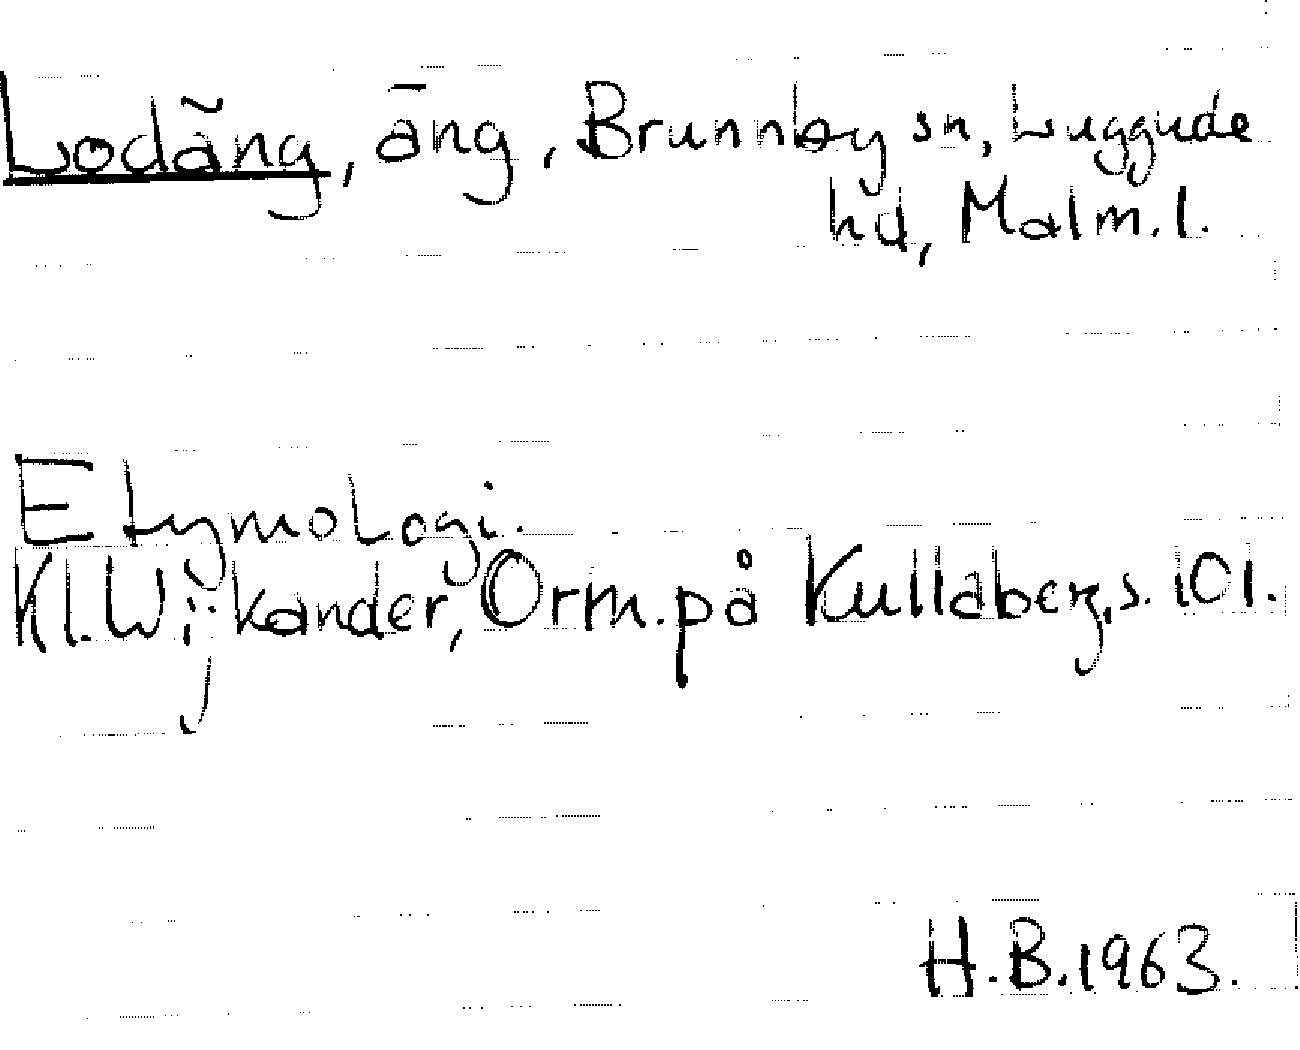 Lodäng, äng, Brunnby sn, Luggude
hd, Malm. l.
Etymologi.
Kl. Wijkander, Orm. på Kullaberg, s. 101.
H.B. 1963.